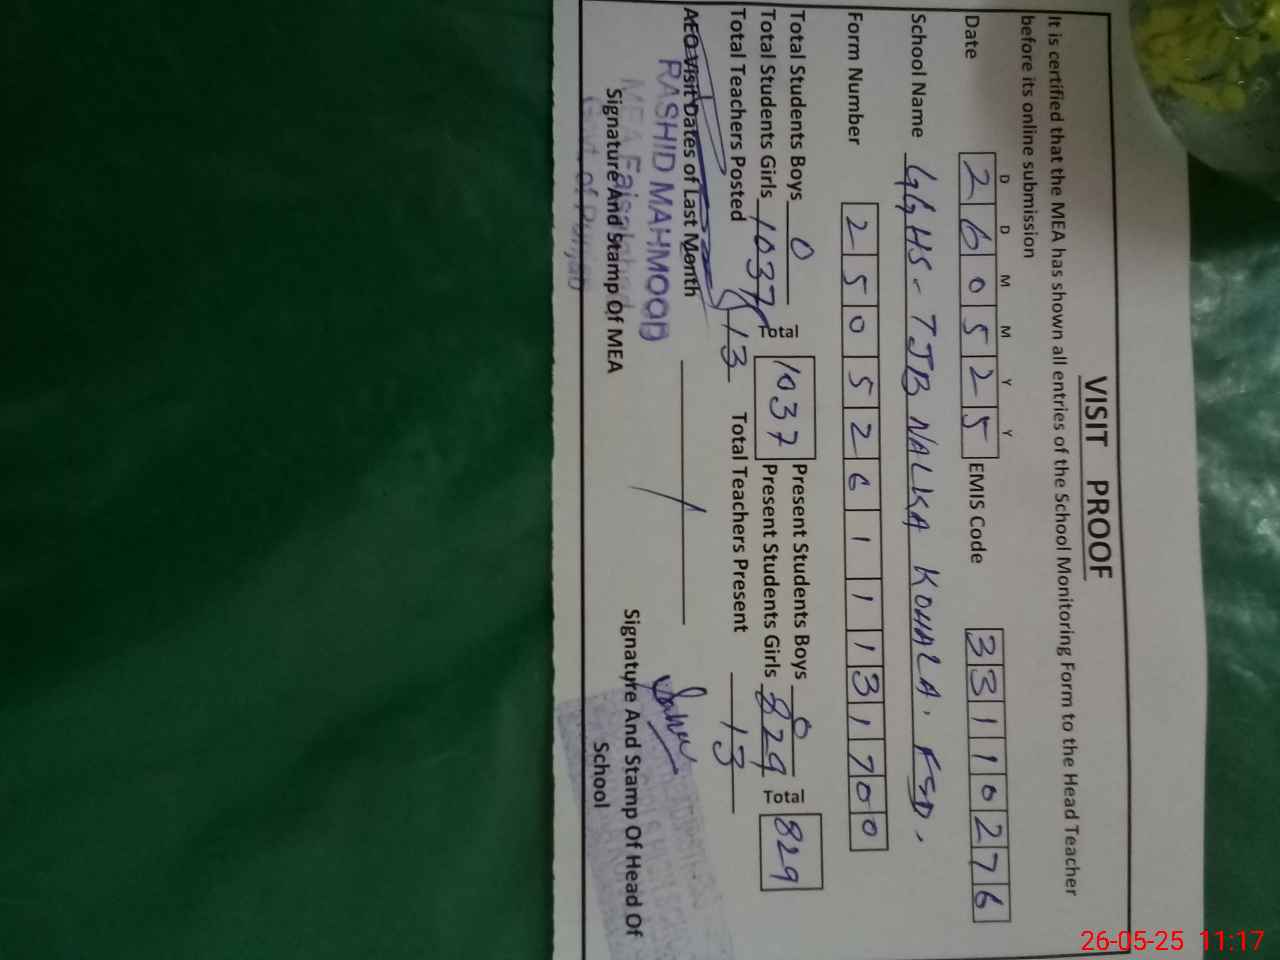 VISIT PROOF
It is certified that the MEA has shown all entries of the School Monitoring Form to the Head Teacher
before its online submission
D D M M Y Y
Date 2 6 0 5 2 5 EMIS Code 3 3 1 1 0 2 7 6
School Name GGHS - 7JB NALKA KOHALA. FSD.
Form Number 2 5 0 5 2 6 1 1 1 3 1 7 0 0
Total Students Boys 0 Tota 1037 Present Students Boys 0 Tota 829
Total Students Girls 1037 Present Students Girls 829
Total Teachers Posted 13 Total Teachers Present 13
AEO Visit Dates of Last Month
RASHID MAHMOOD
MEA Faisalabad
Govt. of Punjab
Signature And Stamp Of MEA Signature And Stamp Of Head Of
School
26-05-25 11:17